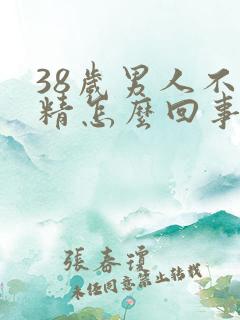 38歲男人不
精怎麼回事
張春瓊
未经同意禁止转载